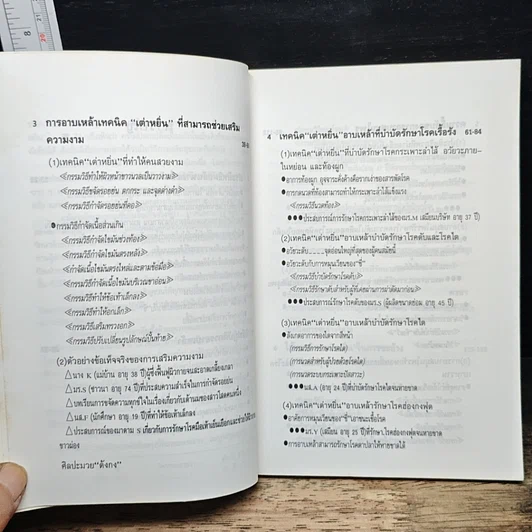 8
3 การอาบเหล้าเทคนิค "เต่าหยิ่น" ที่สามารถช่วยเสริม
ความงาม
(1)เทคนิค"เต่าหยิ่น"ที่ทำให้คนสวยงาม
≪กรรมวิธีทำให้ผิวหน้าขาวนวลเป็นวาวงาม≫
≪กรรมวิธีขจัดรอยย่น ตกกระ และจุดด่างดำ≫
≪กรรมวิธีขจัดรอยย่นที่คอ≫
●กรรมวิธีกำจัดเนื้อส่วนเกิน
≪กรรมวิธีกำจัดไขมันช่วงท้อง≫
≪กรรมวิธีกำจัดไขมันตรงหลัง≫
≪กำจัดเนื้อไขมันตรงไหล่และตามข้อมือ≫
≪กรรมวิธีกำจัดเนื้อไขมันบริเวณขาอ่อน≫
≪กรรมวิธีทำให้ข้อเท้าเล็กลง≫
≪กรรมวิธีทำให้อกเล็ก≫
≪กรรมวิธีเสริมทรวงอก≫
≪กรรมวิธีปรับเปลี่ยนรูปลักษณ์ปั้นท้าย≫
(2)ตัวอย่างข้อเท็จจริงของการเสริมความงาม
△นาง K (แม่บ้าน อายุ 38 ปี)ผู้ซึ่งฟื้นฟูผิวกายจนสะอาดเกลี้ยงเกลา
△มร.S (ชาวนา อายุ 74 ปี)ที่ประสบความสำเร็จในการกำจัดรอยย่น
△บทเรียนการขจัดความทุกข์ใจในเรื่องเกี่ยวกับด้านผมของสาวโสดคนหนึ่ง
△นส.F (นักศึกษา อายุ 19 ปี)ที่ทำให้ข้อเท้าเล็กลง
△ประสบการณ์ของมาดาม S เกี่ยวกับการรักษาโรคมือเท้าเย็นเยือกและช่วยให้ผิว
ขาวผ่อง
ศิลปะมวย"ดังกง"
4 เทคนิค"เต่าหยิ่น"อาบเหล้าที่บำบัดรักษาโรคเรื้อรัง 61-84
(1)เทคนิค"เต่าหยิ่น"ที่บำบัดรักษาโรคกระเพาะลำไส้ อวัยวะภาย-
ในหย่อน และท้องผูก
●อาการท้องผูก อุจจาระคั่งค้างคือรากเง่าของสารพัดโรค
●การกดนวดที่ท้องสามารถทำให้กระเพาะลำไส้แข็งแรง
≪กรรมวิธีนวดท้อง≫
●●●ประสบการณ์การรักษาโรคกระเพาะลำไส้ของมร.M (เสมียนบริษัท อายุ 37 ปี)
(2)เทคนิค"เต่าหยิ่น"อาบเหล้าบำบัดรักษาโรคตับและโรคไต
●อวัยวะตับ........จุดอ่อนใหญ่ที่สุดของผู้คนสมัยนี้
●อวัยวะตับกับการหมุนเวียนของ"ชี่"
≪กรรมวิธีบำบัดรักษาโรคตับ≫
≪กรรมวิธีรักษาตับสำหรับผู้ที่เคยผ่านการผ่าตัดมาก่อน≫
●●●ประสบการณ์รักษาโรคตับของมร.S (ผู้ผลิตขนาดย่อม อายุ 45 ปี)
(3)เทคนิค"เต่าหยิ่น"อาบเหล้าบำบัดรักษาโรคไต
●สังเกตอาการของโรคไตจากสีหน้า
(กรรมวิธีการรักษาโรคไต)
(การนวดสำหรับผู้ป่วยด้วยโรคไต)
(การนวดระบบกระเพาะปัสสาวะ)
●●●นส.A (อายุ 24 ปี)บำบัดรักษาโรคไตจนหายขาด
(4)เทคนิค"เต่าหยิ่น"อาบเหล้ารักษาโรคฮ่องกงฟุต
●อาศัยการหมุนเวียนของ"ชี่"เอาชนะเชื้อโรค
●●●มร.V (เสมียน อายุ 25 ปี)ที่รักษาโรคฮ่องกงฟุตจนหายขาด
●การอาบเหล้าสามารถรักษาโรคตาปลาให้หายขาดได้